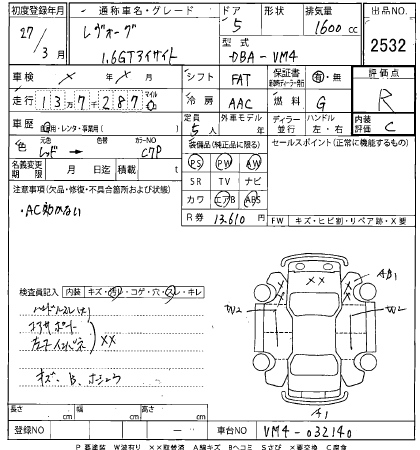 初度登録年月 通称車名・グレード ドア 形状 排気量 出品NO.
27/3月 レヴォーグ 5 1600cc 2532
1.6GTアイサイト 型式
DBA-VM4
車検 ×年×月 シフト FAT 保証書 有・無 評価点
走行 137287 マイル 冷房 AAC 燃料 G R
車歴 自家用・レンタ・事業用( ) 定員 5人 外車モデル 年 ディーラー 並行 ハンドル 左・右 内装評価 C
色 元色 レッド → 色替 カラーNO C7P 装備品(純正品に限る) セールスポイント(正常に機能するもの)
名義変更期限 月 日迄 積載 t PS PW AW
SR TV ナビ
注意事項(欠品・修復・不具合箇所および状態) カワ エアB ABS
・AC効かない R券 13,610円
FW キズ・ヒビ割・リペア跡・X要
検査員記入 内装 キズ・汚レ・コゲ・穴・スレ・キレ
××
キズ、B、ホシュウ
×× W2 W2 A1
長さ cm 幅 cm 高さ cm
登録NO - 車台NO VM4-032140
P要塗装 W波有り ××取替済 A線キズ Bヘコミ Sさび X要交換 C腐食